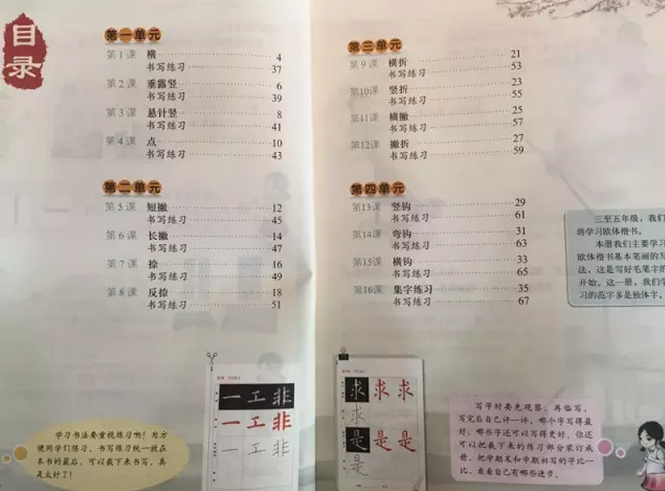 目录
第一单元
第1课 横 4
书写练习 37
第2课 垂露竖 6
书写练习 39
第3课 悬针竖 8
书写练习 41
第4课 点 10
书写练习 43
第二单元
第5课 短撇 12
书写练习 45
第6课 长撇 14
书写练习 47
第7课 捺 16
书写练习 49
第8课 反捺 18
书写练习 51
一工非
一工非
一工非
学习书法要重视练习啊！为方
便同学们练习，书写练习统一放在
本书的最后，可以裁下来书写，真
是太好了！
第三单元
第9课 横折 21
书写练习 53
第10课 竖折 23
书写练习 55
第11课 横撇 25
书写练习 57
第12课 撇折 27
书写练习 59
第四单元
第13课 竖钩 29
书写练习 61
第14课 弯钩 31
书写练习 63
第15课 横钩 33
书写练习 65
第16课 集字练习 35
书写练习 67
三至五年级，我们
将学习欧体楷书。
本册我们主要学习
欧体楷书基本笔画的写
法，这是写好毛笔字的
开始。这一册，我们学
习的范字多是独体字。
求求求
求
是是是
是
写字时要先观察，再临写，
写完后自己评一评，哪个字写得最
好，哪些字还可以写得更好。你还
可以把裁下来的练习部分装订成
册，把学期末和学期初写的字比一
比，看看自己有哪些进步。